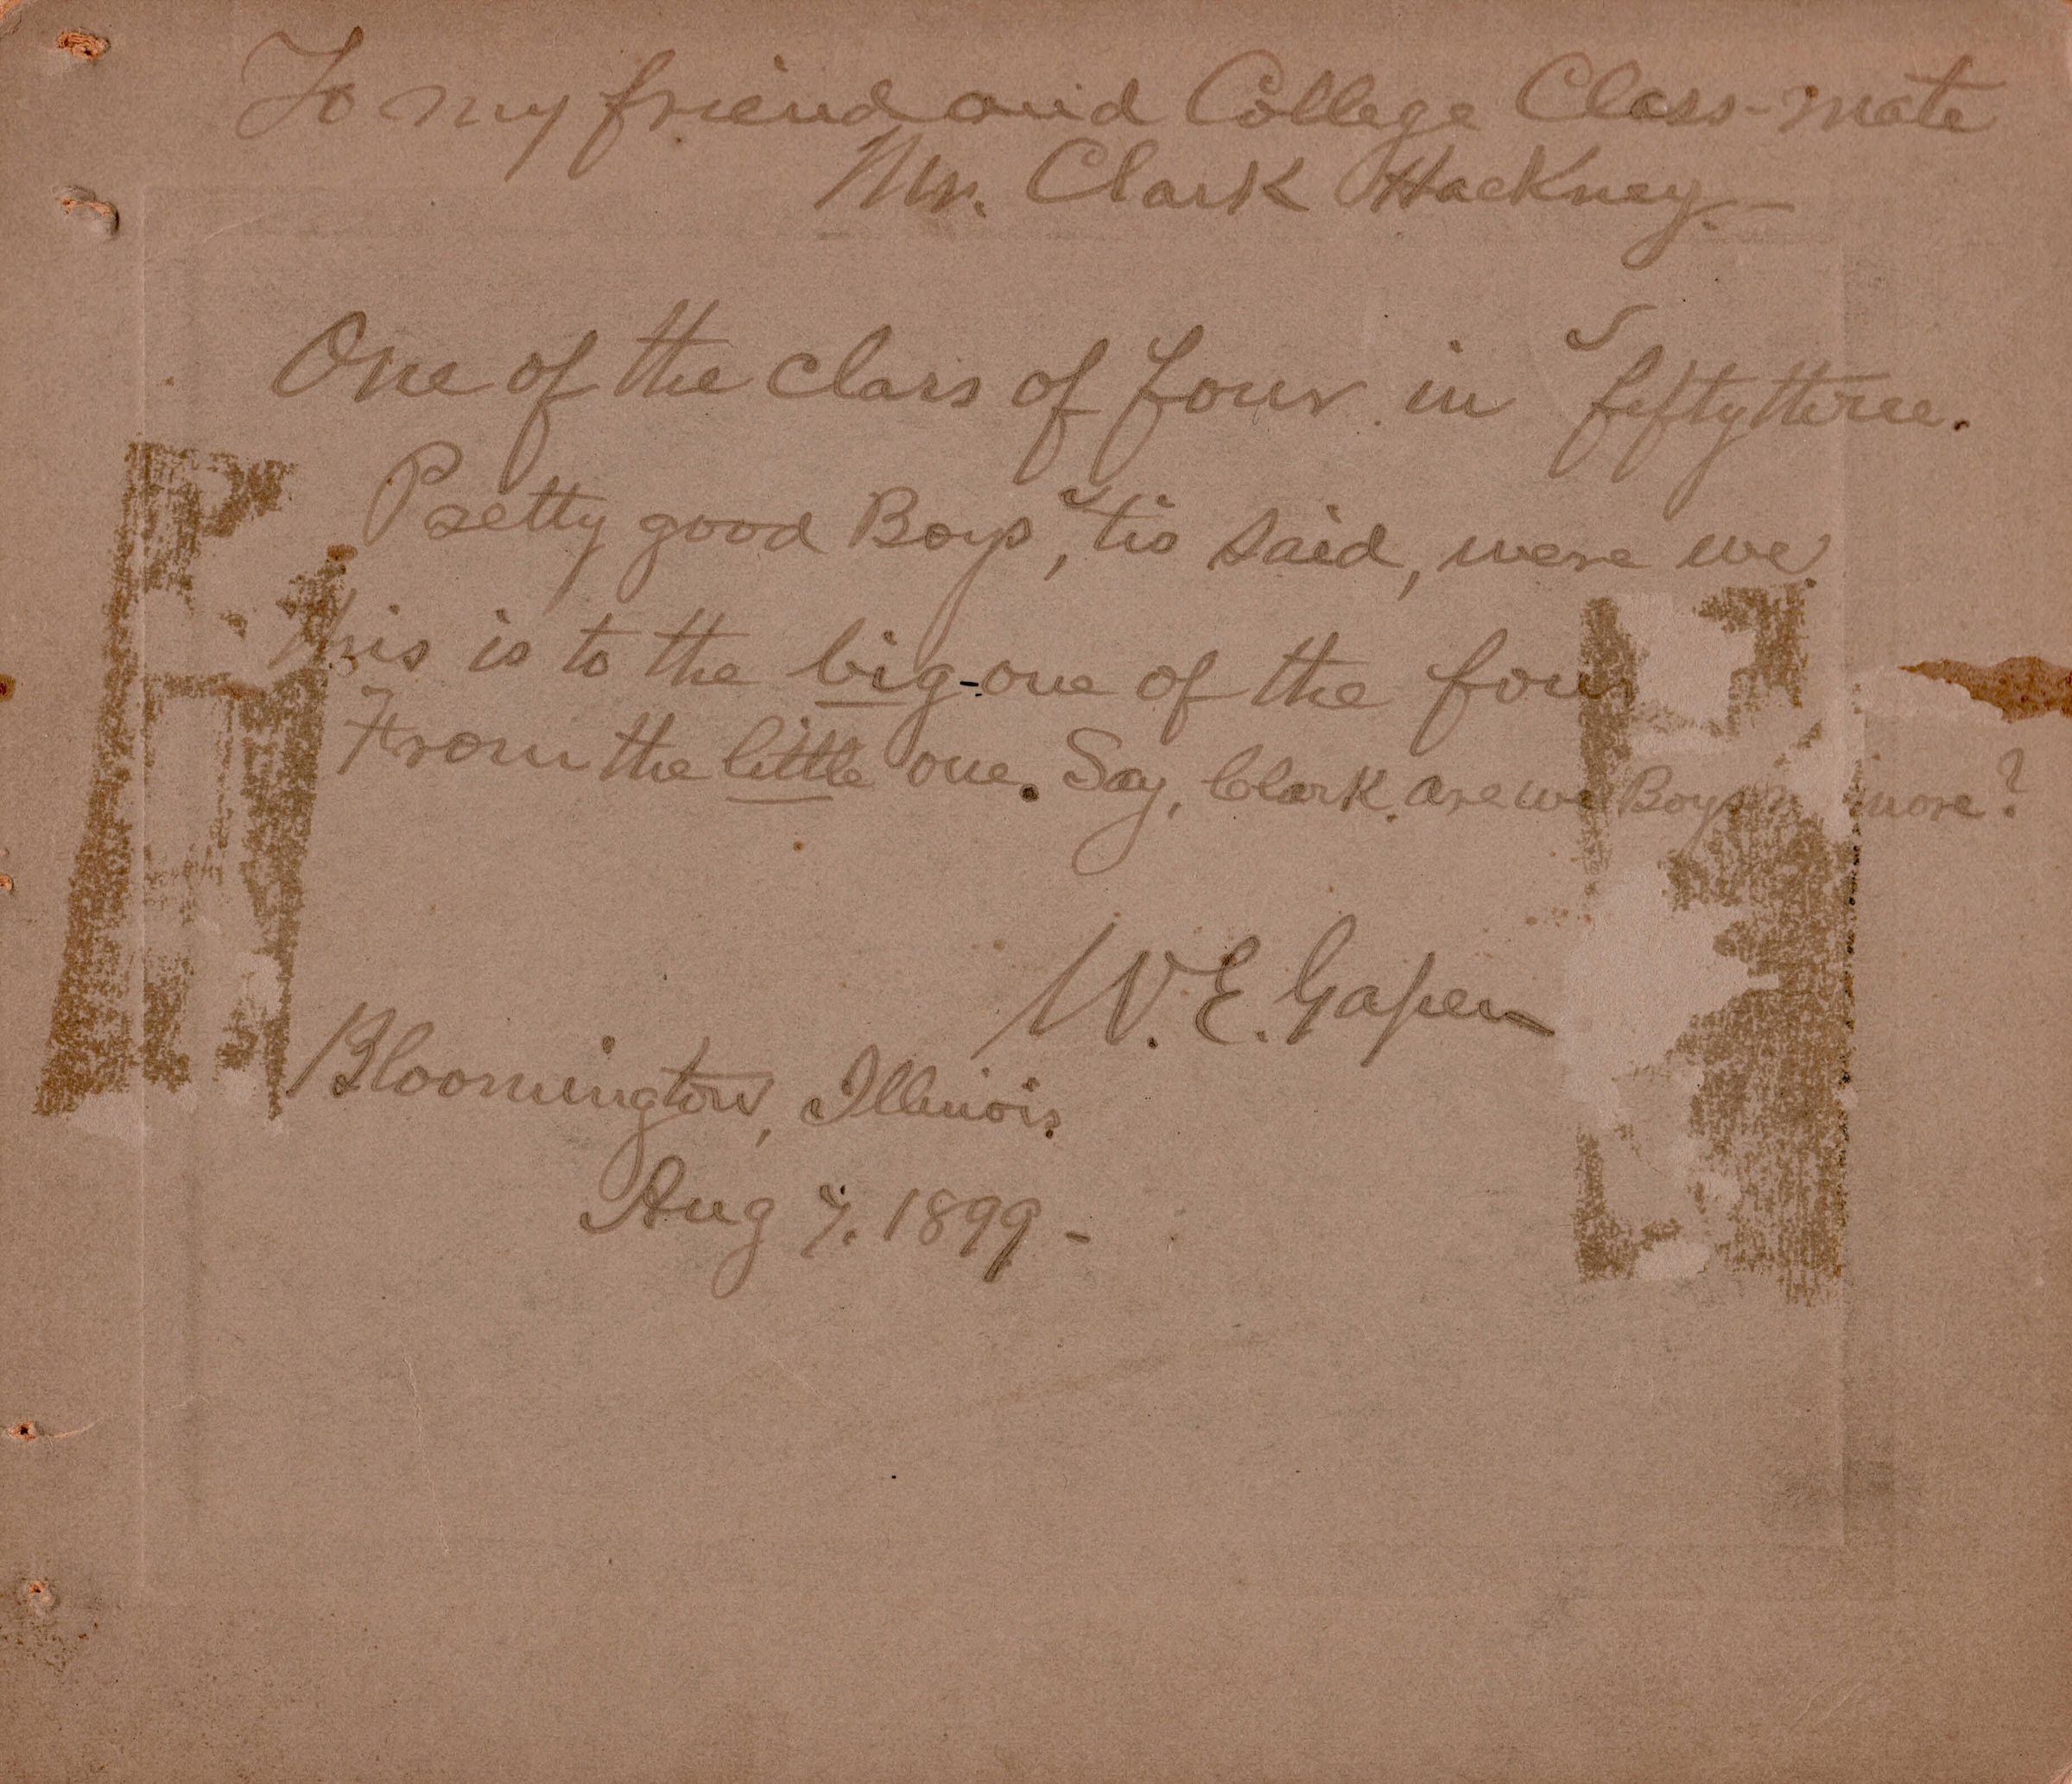 To my friend and College Class-mate
Mr. Clark Hackney.-
One of the class of four in 'fifty three.
Pretty good Boys, 'tis said, were we
This is to the big-one of the four
From the little one. Say, Clark, are we Boys more?
W. E. Gapen
Bloomington, Illinois.
Aug 7. 1899 -